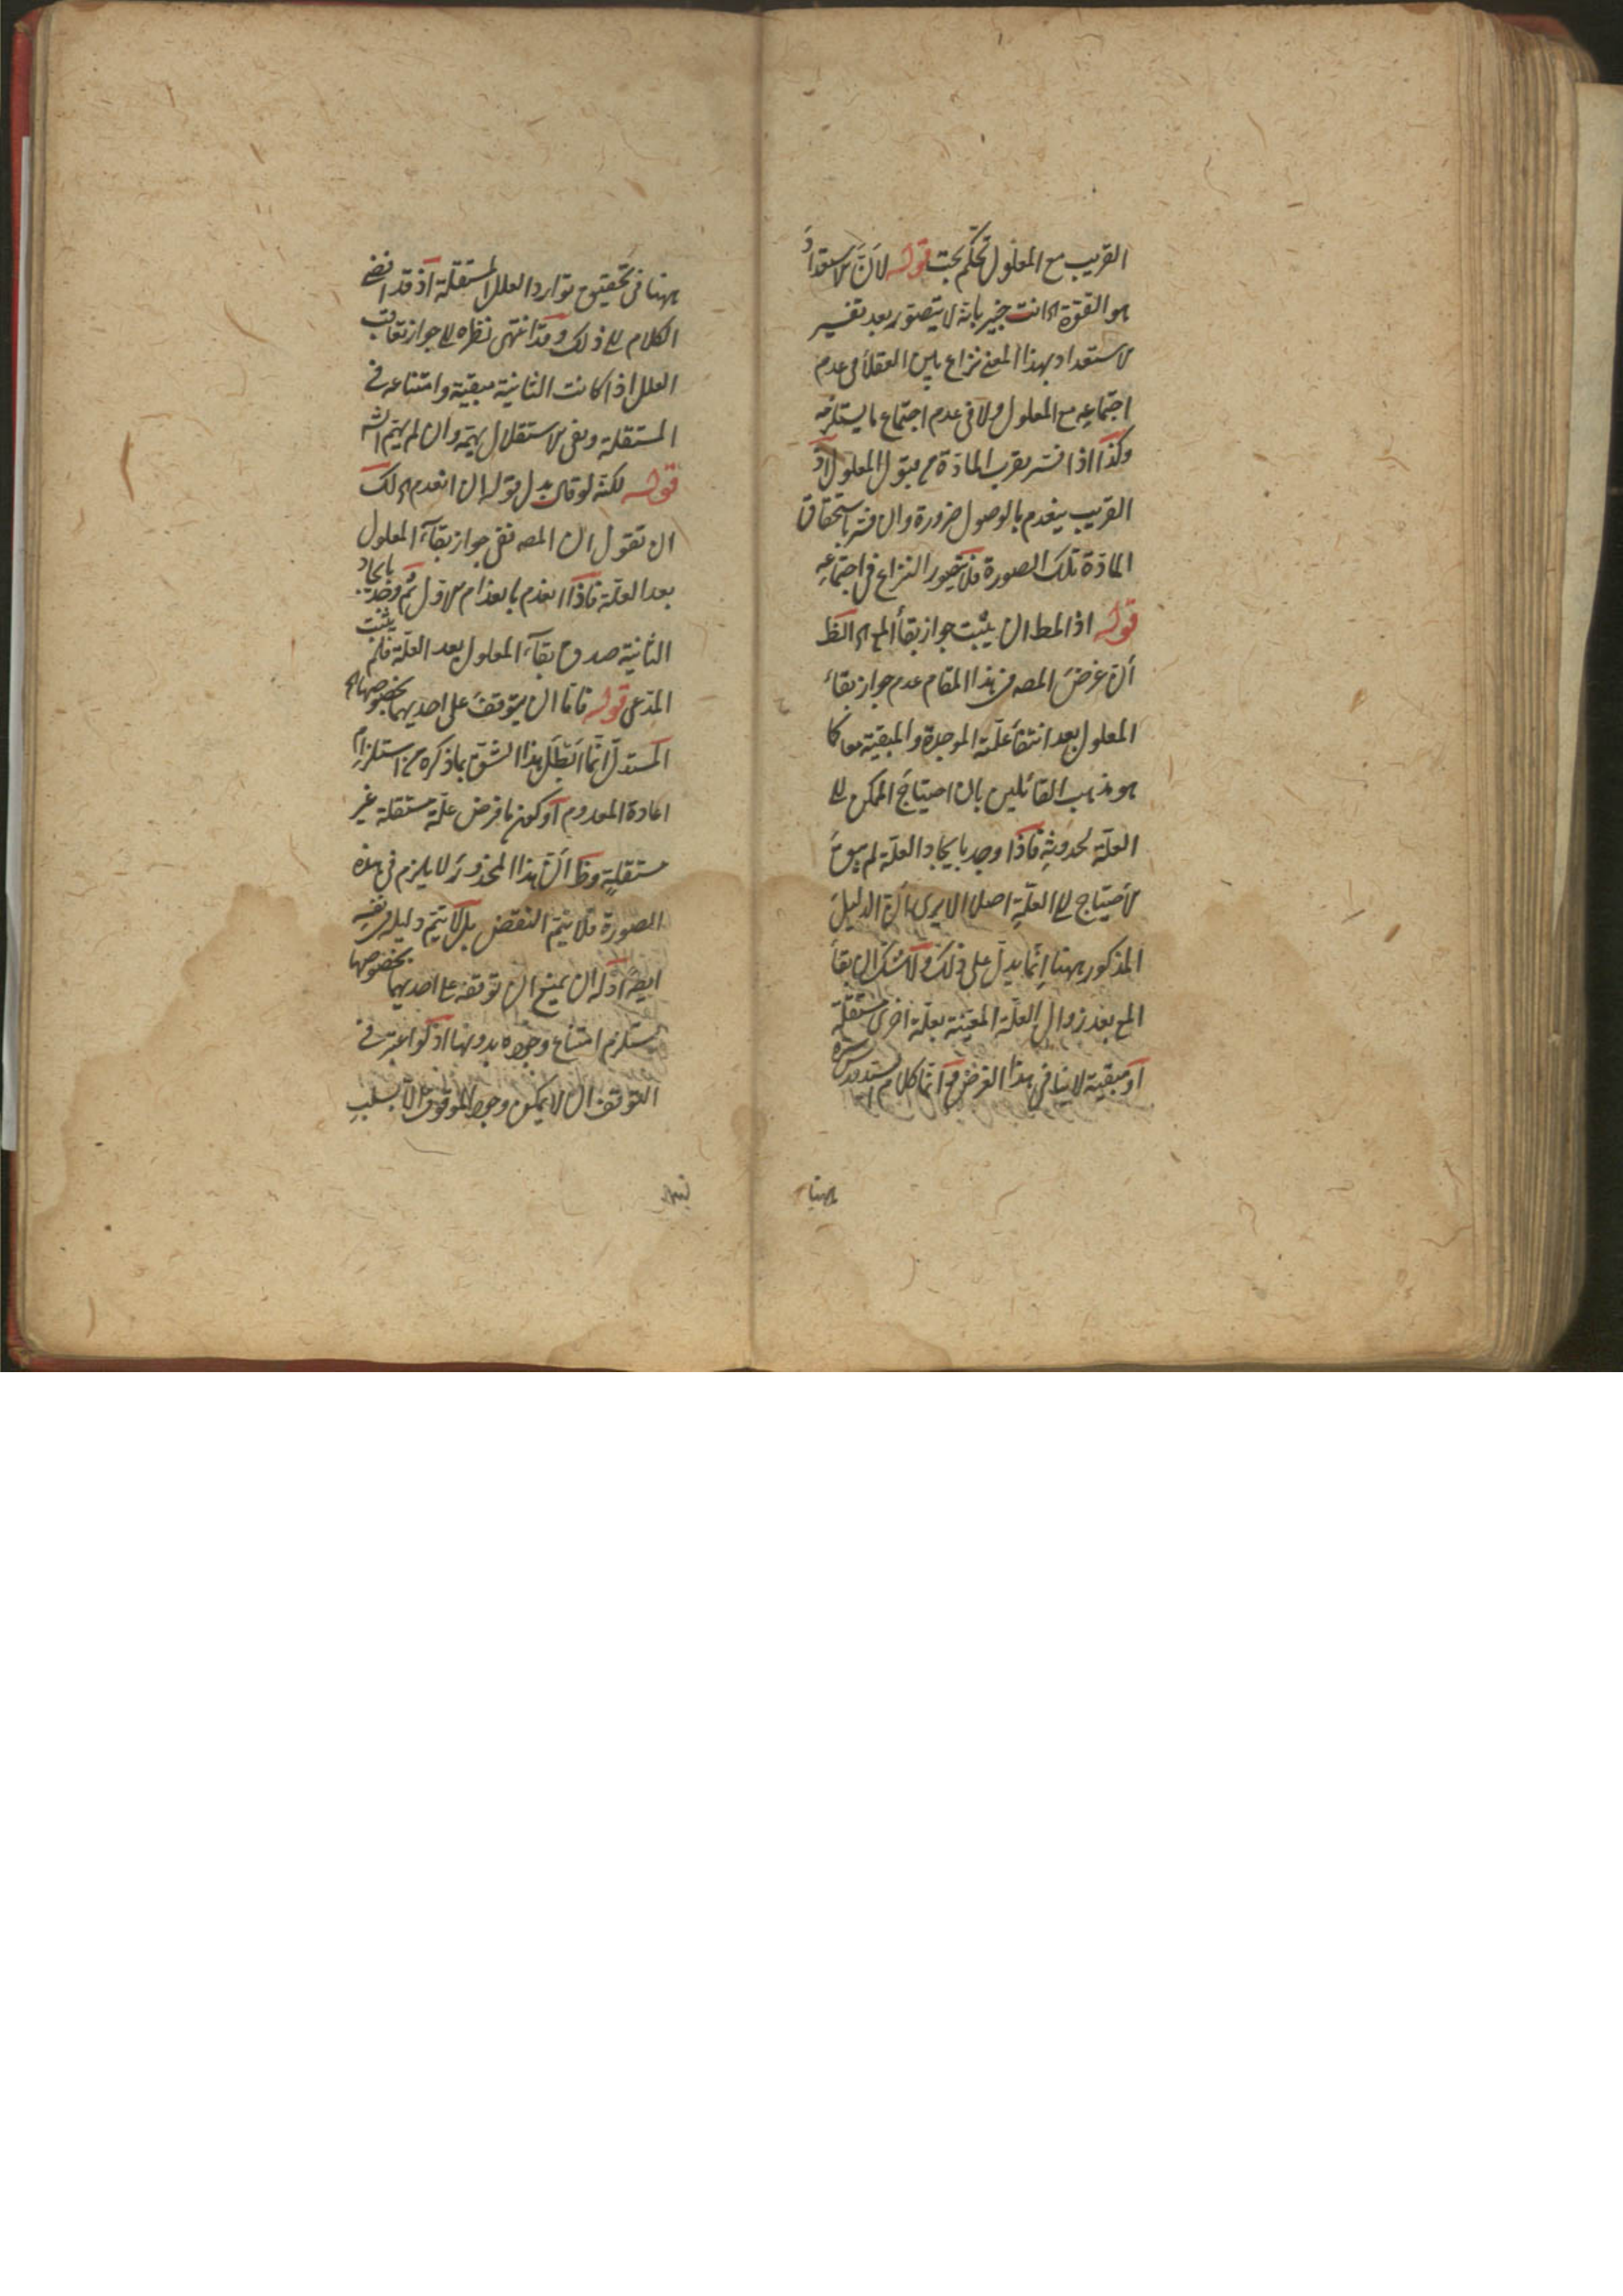 القريب مع المعلول تحكم بحت قوله لأن الاستعداد
هو القوة اه انت خبير بانه لا يتصور بعد تفسير
الاستعداد بهذا المعنى نزاع بين العقلاء في عدم
اجتماعه مع المعلول ولا في عدم اجتماع ما يستلزمه
وكذا اذا فسر بقرب المادة من قبول المعلول اذ
القريب ينعدم بالوصول ضرورة وان فسر باستحقاق
المادة تلك الصورة فلا يتصور النزاع في اجتماعه
قوله اذ المط ان يثبت جواز بقاء المع اه الظ
أن غرض المصه في هذا المقام عدم جواز بقاء
المعلول بعد انتفاء علته الموجدة والمبقية معا كما
هو مذهب القائلين بان احتياج الممكن الى
العلة لحدوثه فاذا وجد بايجاد العلة لم يبق
الاحتياج الى العلة اصلا الا يرى أن الدليل
المذكور ههنا انما يدل على ذلك ولا شك ان بقاء
المع بعد زوال العلة المعينة بعلة اخرى مستقلة
او مبقية لا ينافي هذا الغرض وانما كلام السيد قدس سره
ههنا
ههنا في تحقيق توارد العلل المستقلة اذ قد افضى
الكلام الى ذلك وقد انتهى نظره الى جواز تعاقب
العلل اذا كانت الثانية مبقية وامتناعه في
المستقلة ونفى الاستقلال يهمه وان لم يهم الشه
قوله لكنه لو قال بدل قوله ان انعدم اه لك
ان تقول ان المصه نفى جواز بقاء المعلول
بعد العلة فاذا انعدم بانعدام الاول ثم وجد بايجاد
الثانية صدق بقاء المعلول بعد العلة فلم يثبت
المدعى قوله فاما ان يتوقف على احديهما بخصوصها اه
المستدل انما ابطل هذا الشق بما ذكره من استلزام
اعادة المعدوم او كون ما فرض علة مستقلة غير
مستقلة وظ أن هذا المحذور لا يلزم في هذه
الصورة فلا يتم النقض بل لا يتم دليله في نفسه
ايضا اذ له ان يمنع ان توقفه على احديهما بخصوصها
يستلزم امتناع وجوده بدونها اذ لو اعتبر في
التوقف ان لا يمكن وجود الموقوف الا بسبب